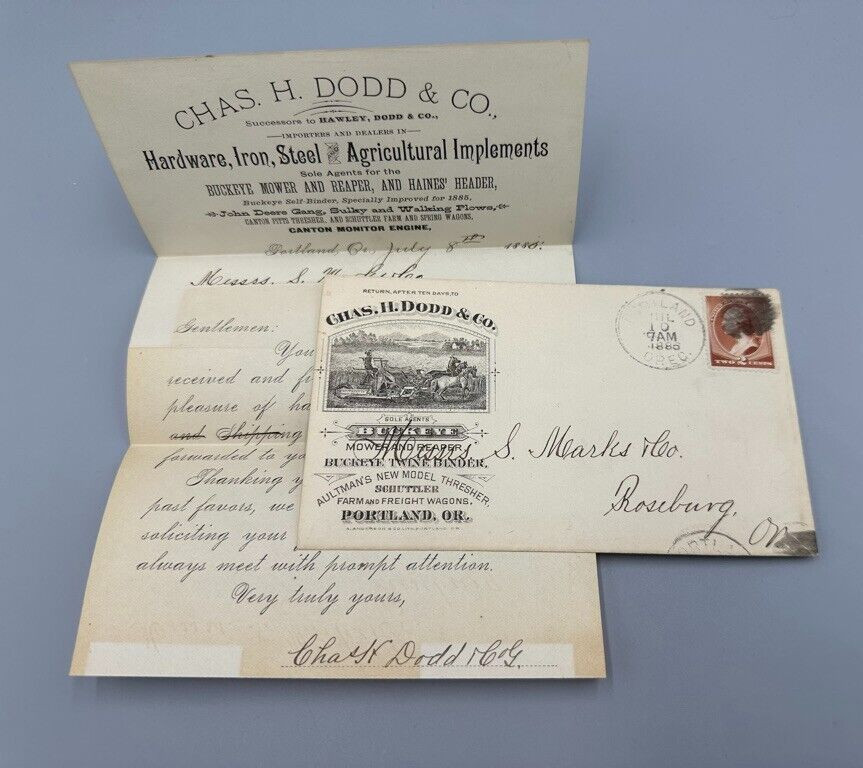 CHAS. H. DODD & CO.,
Successors to HAWLEY, DODD & CO.,
IMPORTERS AND DEALERS IN
Hardware, Iron, Steel and Agricultural Implements
Sole Agents for the
BUCKEYE MOWER AND REAPER, AND HAINES' HEADER,
Buckeye Self-Binder, Specially Improved for 1885,
John Deere Gang, Sulky and Walking Plows,
CANTON PITTS THRESHER, AND SCHUTTLER FARM AND SPRING WAGONS,
CANTON MONITOR ENGINE,
Portland, Or., July 8th 1885.
Messrs. S.
Gentlemen:
You
received and
pleasure of
and Shipping
forwarded to
Thanking
past favors, we
soliciting your
always meet with prompt attention.
Very truly yours,
Chas H Dodd & Co
RETURN, AFTER TEN DAYS, TO
CHAS. H. DODD & CO.
SOLE AGENTS
BUCKEYE
MOWER AND REAPER
BUCKEYE TWINE BINDER,
AULTMAN'S NEW MODEL THRESHER,
SCHUTTLER
FARM AND FREIGHT WAGONS.
PORTLAND, OR.
10
7AM
1885
OREG.
TWO CENTS
Messrs S. Marks & Co.
Roseburg,
Or